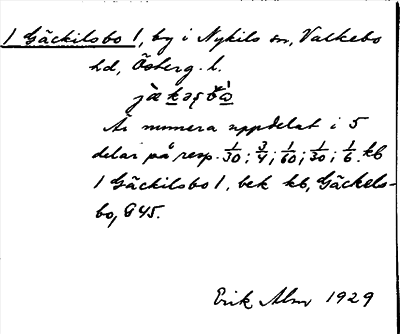 / Gäckilsbo /, by i Nykils sn, Valkebo
hd, Österg. l.
Är numera uppdelat i 5
delar på resp. 1/30; 3/4; 1/60; 1/30; 1/6 kb
/ Gäckilsbo /, bek kb, Gäckels-
bo, G 45.
Erik Alm 1929